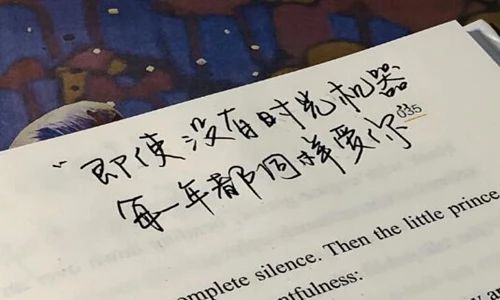 “即使没有时光机器
035
每一年都同样爱你
omplete silence. Then the little prince
ntfulness: